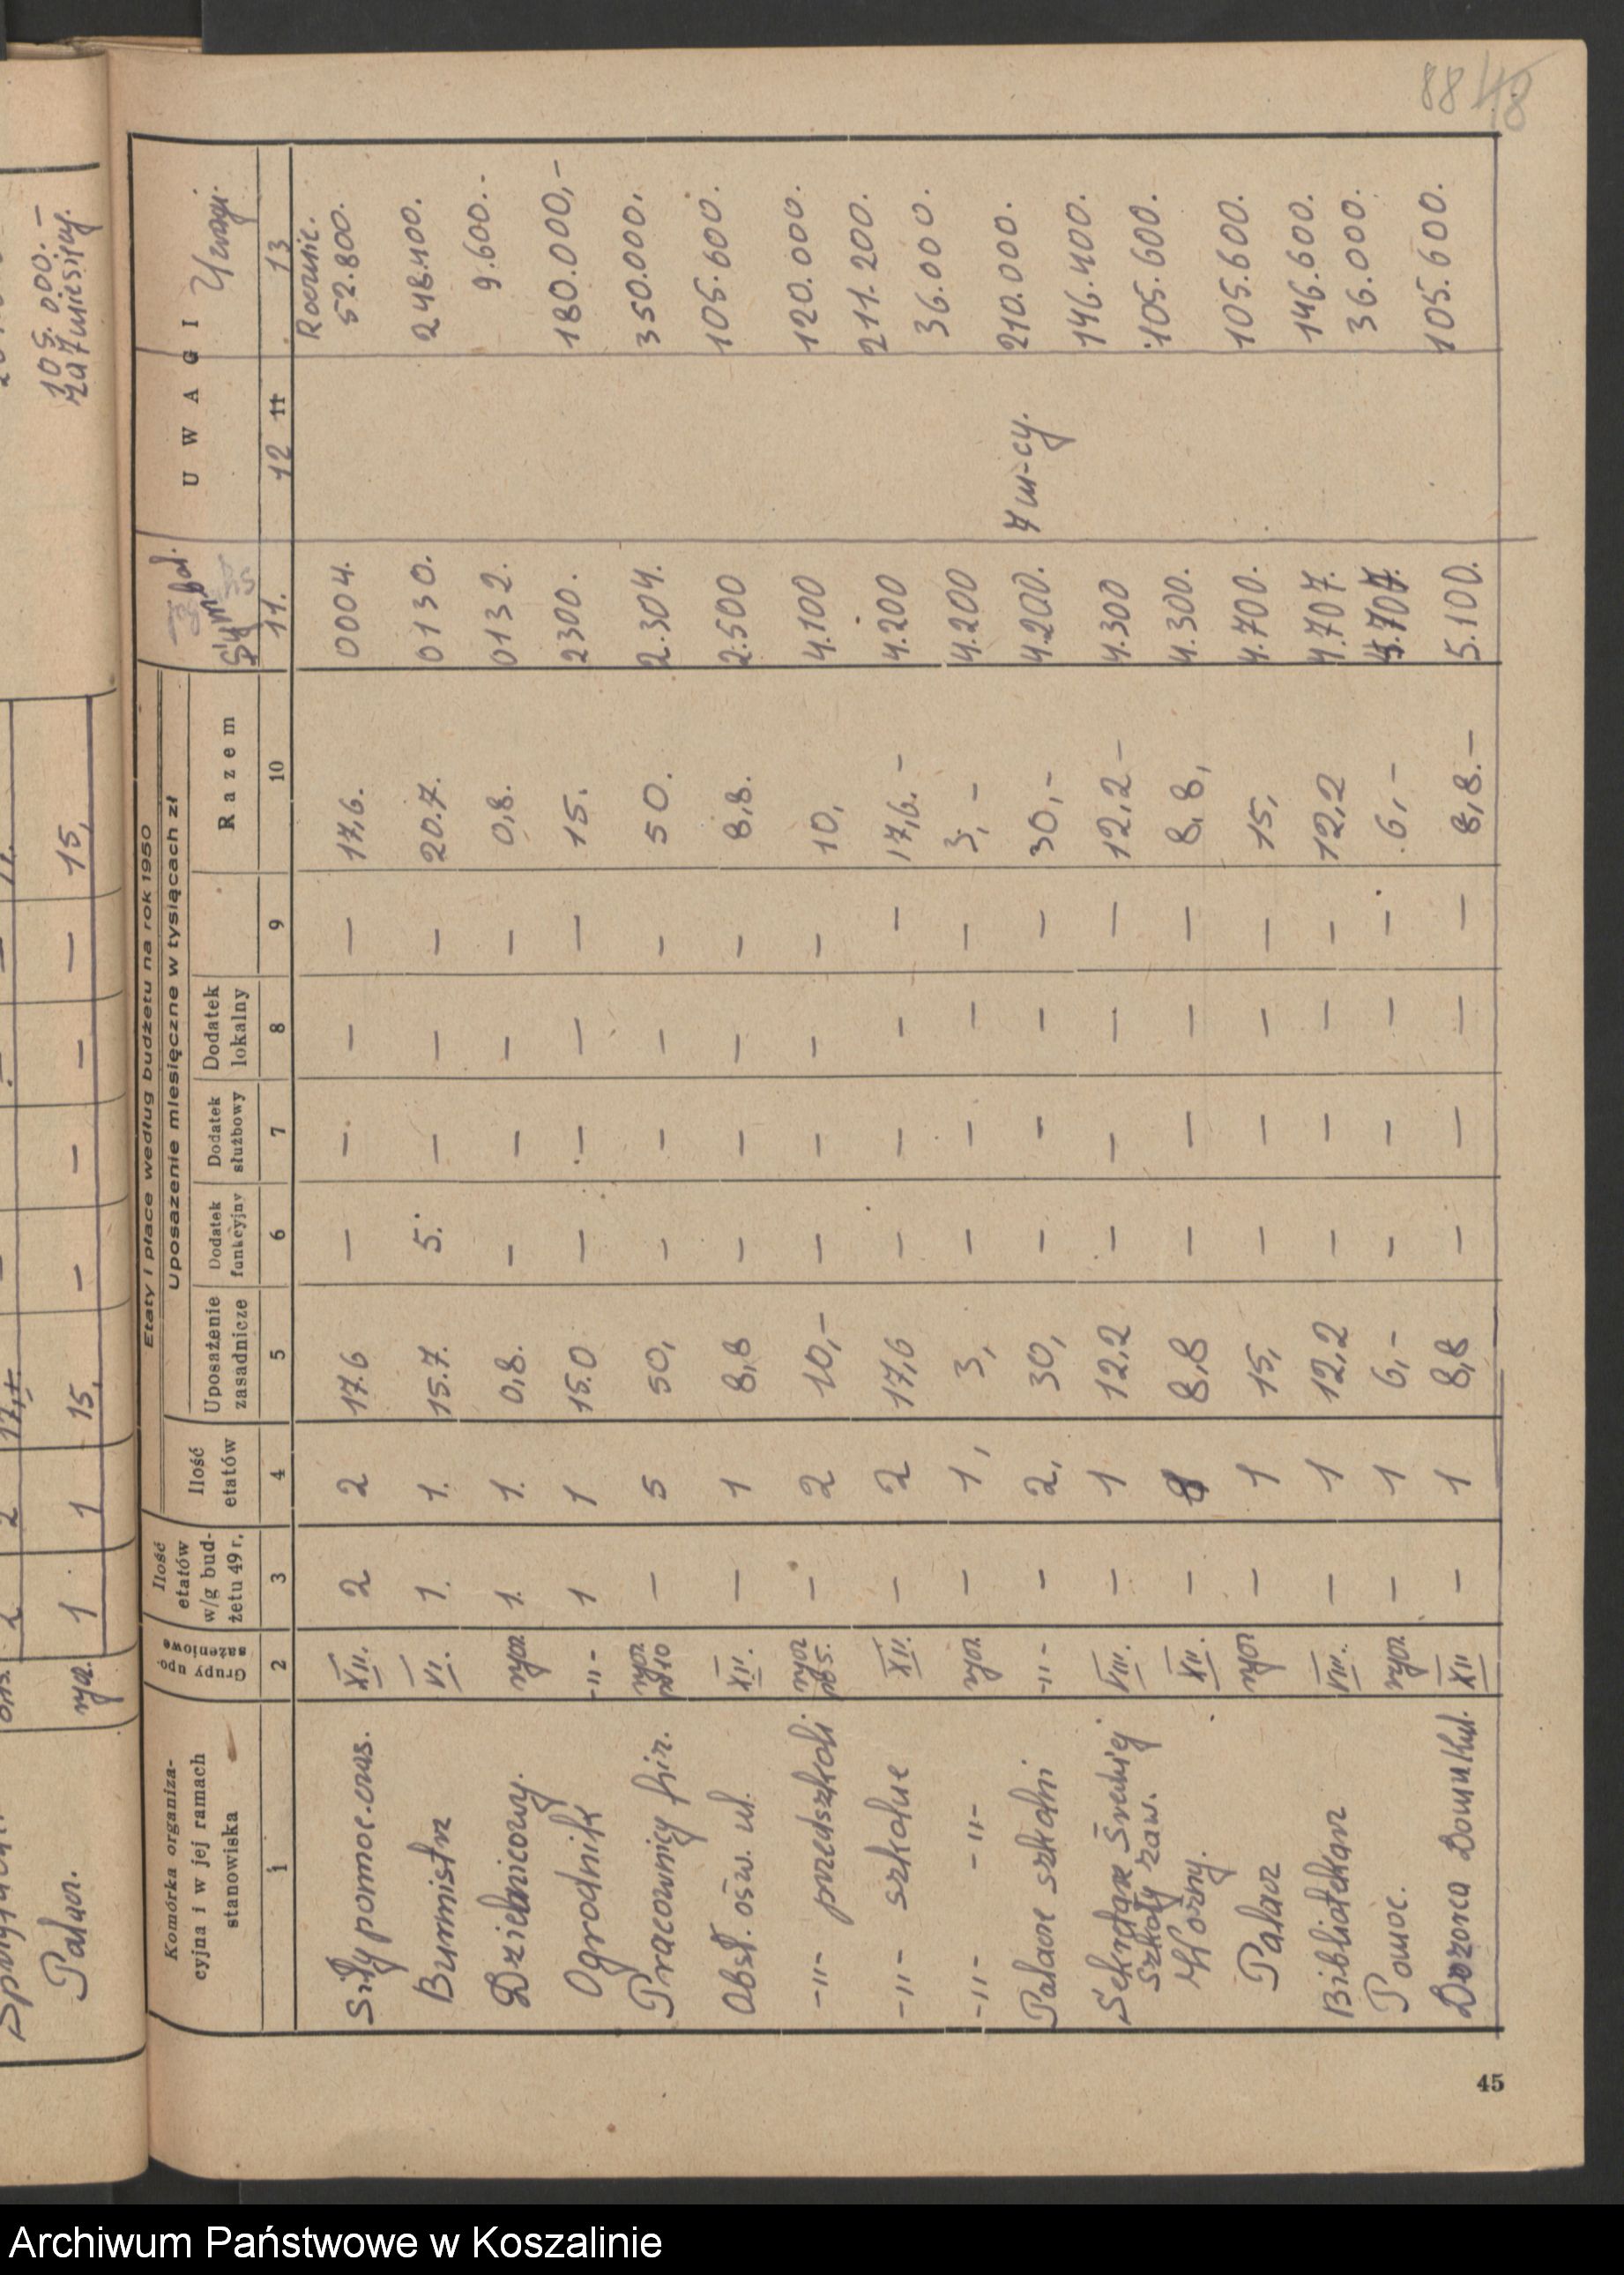 88 48
Etaty i płace według budżetu na rok 1950
Komórka organiza-
cyjna i w jej ramach
stanowiska
Grupy upo-
sażeniowe
Ilość
etatów
w/g bud-
żetu 49 r.
Ilość
etatów
Uposażenie miesięczne w tysiącach zł
Uposażenie
zasadnicze
Dodatek
funkcyjny
Dodatek
służbowy
Dodatek
lokalny
Razem
Symbol.
UWAGI
Uwagi.
1 2 3 4 5 6 7 8 9 10 11. 12 11 13
Rocznie.
Siły pomoc. czas. XII. 2 2 17.6 — — — — 17,6. 0004. 52.800.
Burmistrz VI. 1. 1. 15.7. 5. — — — 20.7. 0130. 248.400.
Dzielnicowy. rycz 1. 1. 0,8. — — — — 0,8. 0132. 9.600.-
Ogrodnik -"- 1 1 15.0 — — — — 15. 2300. 180.000,-
Pracownicy fiz. rycz po 10 — 5 50, — — — — 50. 2.304. 350.000.
Obsł. ośw. ul. XII. — 1 8,8 — — — — 8,8. 2.500 105.600.
-"- przedszkoli rycz po 5. — 2 10,- — — — — 10, 4.100 120.000.
-"- szkolne XII. — 2 17,6 — — — — 17,6.- 4.200 211.200.
-"- -"- rycz. — 1, 3, — — — — 3,- 4.200 36.000.
Palacze szkolni -"- — 2, 30, — — — — 30,- 4.200. 7 m-cy. 210.000.
Sekretarz Średniej
Szkoły zaw. VIII. — 1 12,2 — — — — 12,2- 4.300 146.400.
Woźny. XII. — 1 8,8 — — — — 8,8, 4.300. 105.600.
Palacz rycz — 1 15, — — — — 15, 4.700. 105.600.
Bibliotekarz VIII. — 1 12,2 — — — — 12,2 4.707. 146.600.
Pomoc. rycz. — 1 6,- — — — — 6,- 4.707. 36.000.
Dozorca Domu Kul. XII — 1 8,8 — — — — 8,8.- 5.100. 105.600.
45
Palacz. rycz. 1 1 15, — — — — 15, 105.000.-
za 7 miesięcy.
Archiwum Państwowe w Koszalinie